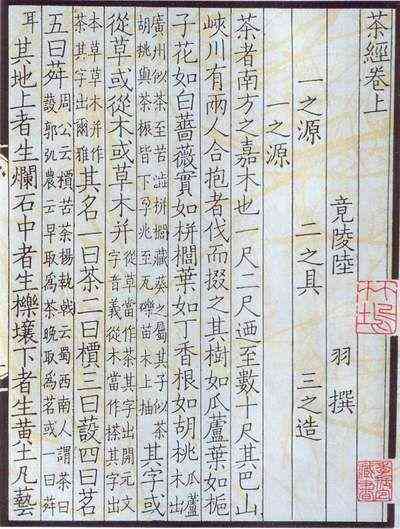 茶經卷上
竟陵陸 羽 撰
一之源 二之具 三之造
一之源
茶者南方之嘉木也一尺二尺迺至數十尺其巴山
峽川有兩人合抱者伐而掇之其樹如瓜蘆葉如梔
子花如白薔薇實如栟櫚葉如丁香根如胡桃瓜蘆木出
廣州似茶至苦澁栟櫚藏葵之屬其子似茶胡桃與茶根皆下孕兆至瓦礫苗木上抽其字或
從草或從木或草木并從草當作茶其字出開元文字音義從木當作搽其字出
本草草木并作茶其字出爾雅其名一曰茶二曰檟三曰蔎四曰茗
五曰荈周公云檟苦茶揚執戟云蜀西南人謂茶曰蔎郭弘農云早取爲茶晚取爲茗或一曰荈
耳其地上者生爛石中者生櫟壤下者生黄土凡藝
藏書